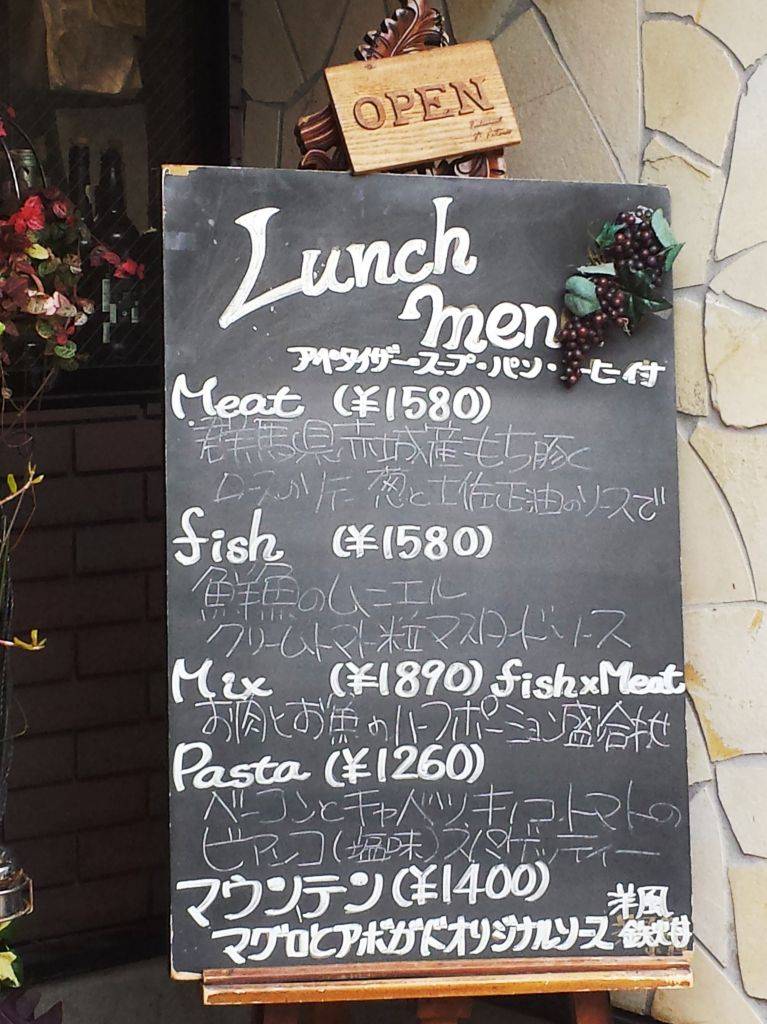 OPEN
Lunch
men
アペタイザー・スープ・パン・ーヒー付
Meat (¥1580)
群馬県赤城産もち豚と
葱と土佐正油のソースで
fish (¥1580)
鮮魚のムニエル
クリームトマト粒マスタードソース
Mix (¥1890) fish×Meat
お肉とお魚のハーフポーション盛合せ
Pasta (¥1260)
ベーコンとキャベツキノコトマトの
ビアンコ(塩味)スパゲッティー
マウンテン(¥1400) 洋風
マグロとアボガドオリジナルソース 鉄火丼